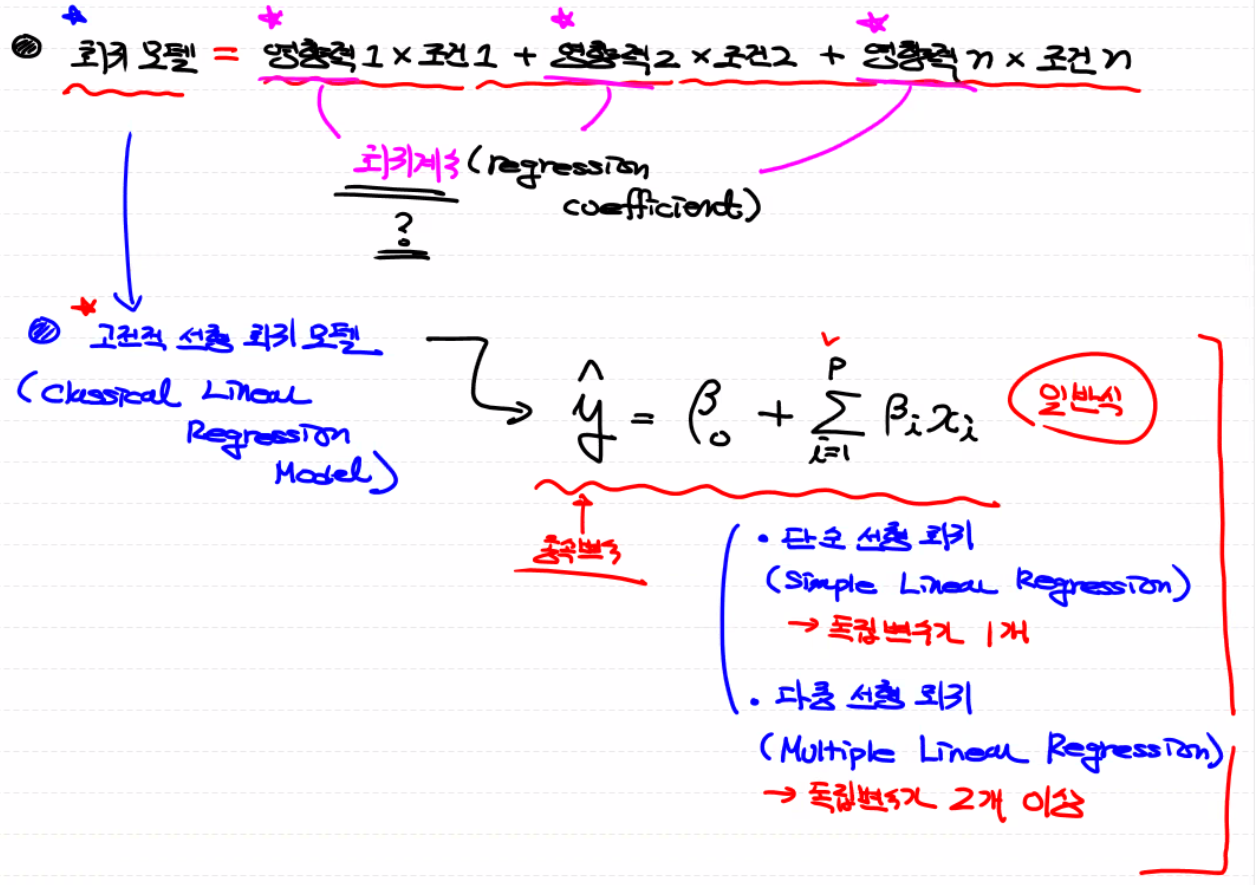 회귀 모델 = 영향력 1 × 조건 1 + 영향력 2 × 조건 2 + 영향력 n × 조건 n
회귀계수 (regression
coefficient)
?
고전적 선형 회귀 모델
(Classical Linear
Regression
Model)
ŷ = β₀ + Σ βᵢxᵢ
p
i=1
일반식
종속변수
• 단순 선형 회귀
(Simple Linear Regression)
→ 독립변수가 1개
• 다중 선형 회귀
(Multiple Linear Regression)
→ 독립변수가 2개 이상